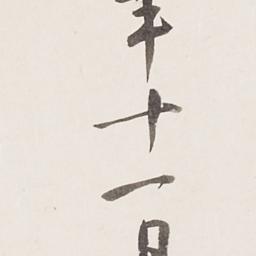 年十一月